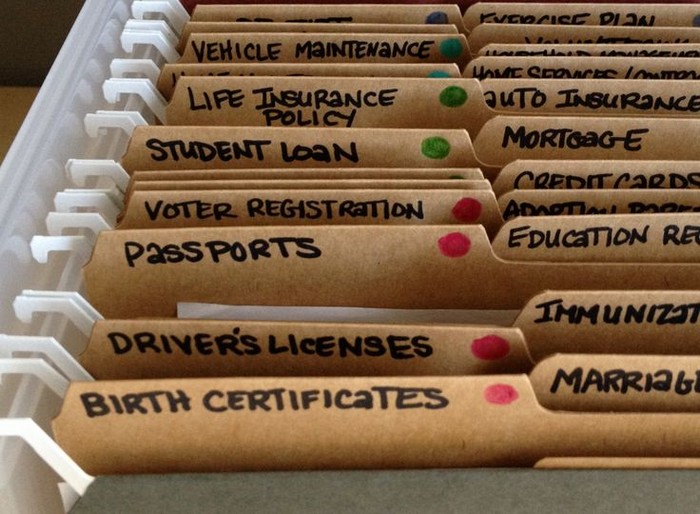 EXERCISE PLAN
VEHICLE MAINTENANCE
HOUSEHOLD
HOME SERVICES
LIFE INSURANCE
POLICY
AUTO INSURANCE
STUDENT LOAN
MORTGAGE
CREDIT CARDS
VOTER REGISTRATION
ADOPTION
PASSPORTS
EDUCATION RE
DRIVER'S LICENSES
IMMUNIZAT
BIRTH CERTIFICATES
MARRIAG